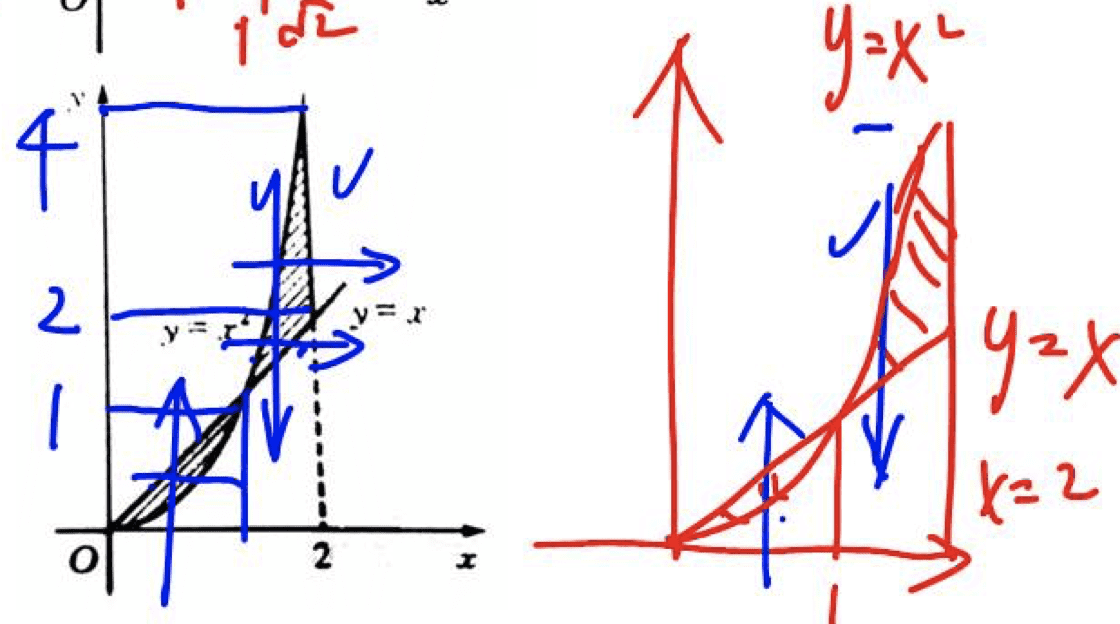 O x
1 √2
y
4
2
y = x²
y = x
1
O 2 x
y=x²
y=x
x=2
1